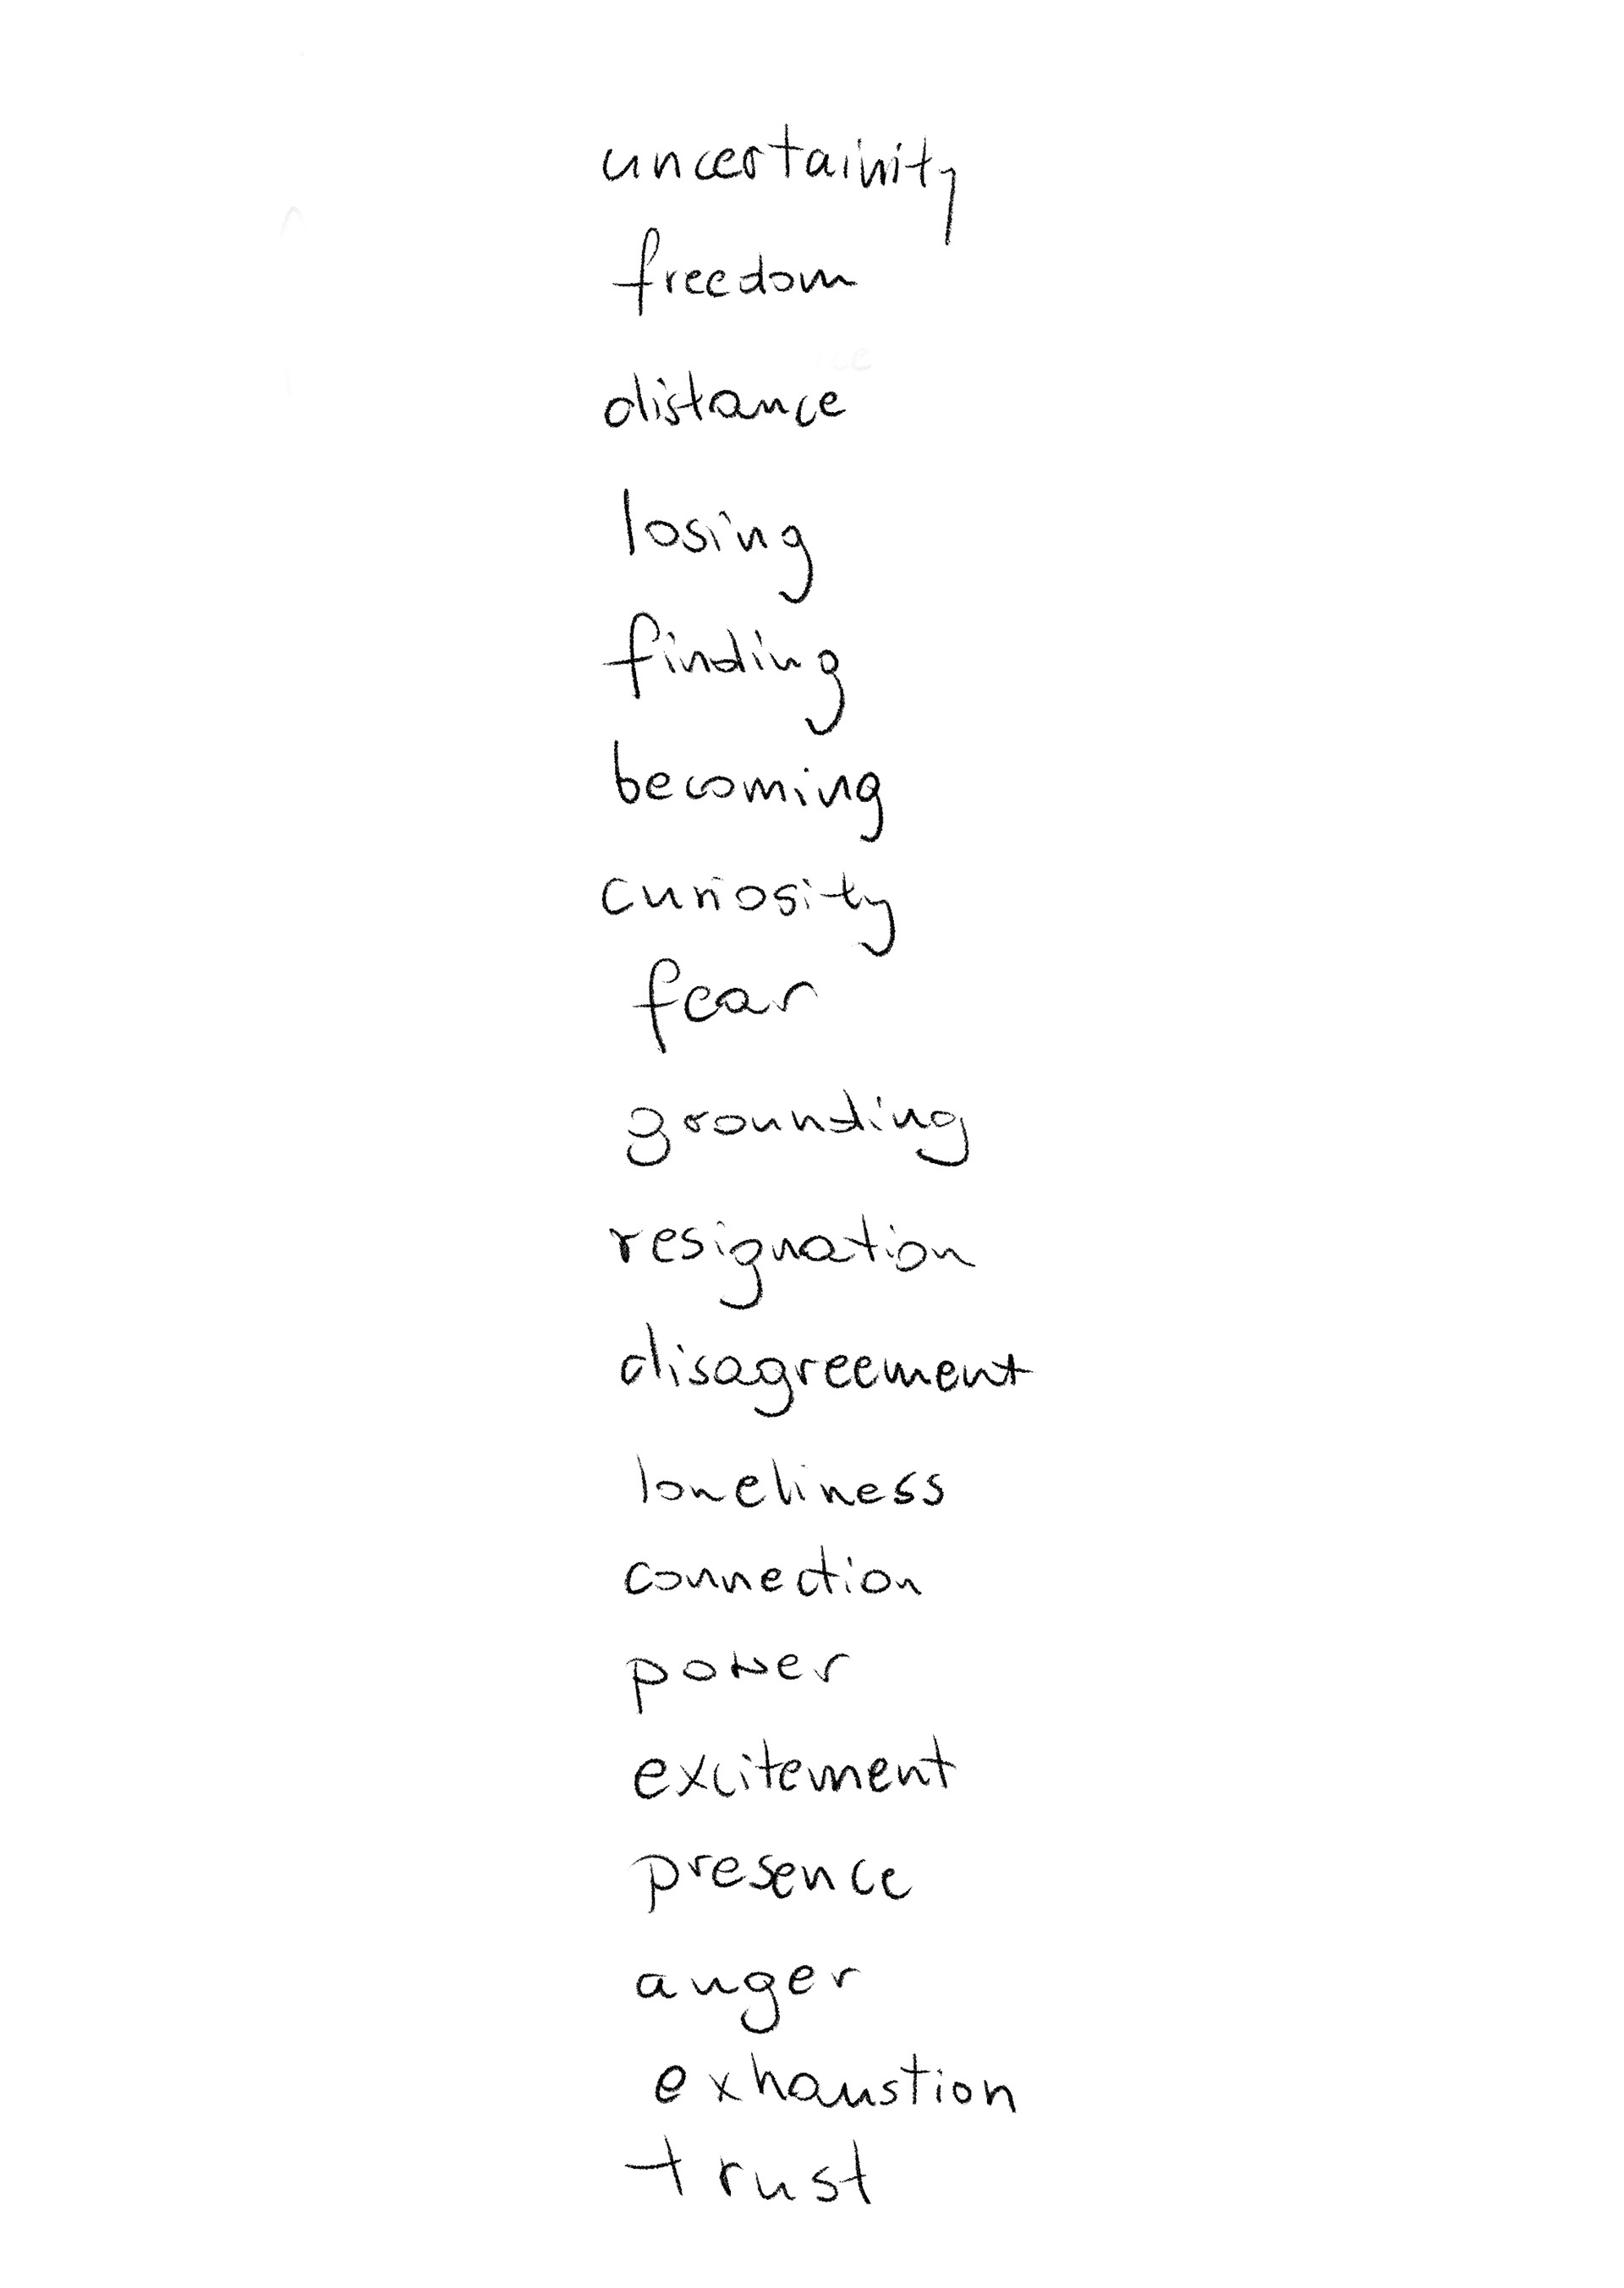 uncertainity
freedom
distance
losing
finding
becoming
curiosity
fear
grounding
resignation
disagreement
loneliness
connection
power
excitement
presence
anger
exhaustion
trust